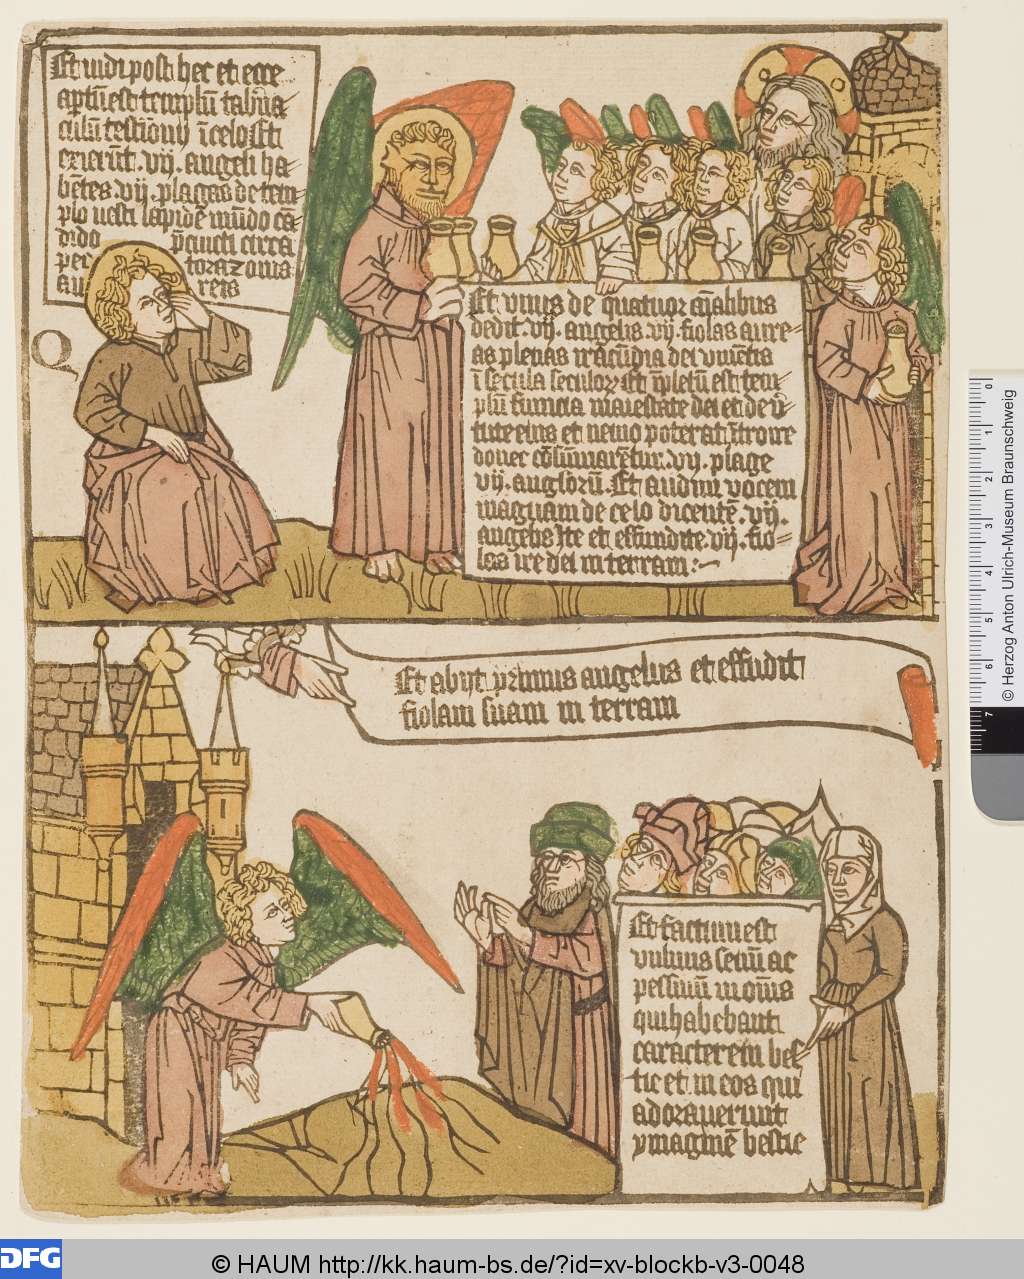 Et uidi post hec et ecce
aptū est templū tab̄na
culū testiōnij ī celo & ti
exierūt .vij. angeli ha-
bētes vij. plagas de tem
plo uesti lapidē mūdo cā
dido p̄cincti circa
pec tora zonis
au reis
Q
Et vnus de quatuor aīalibus
dedit .vij. angelis .vij fiolas aure-
as plenas iracūdia dei viuētis
ī secula seculor̄ Et īpletū est tem-
plū fumeia maiestate dei et de v̄-
tute eius et nemo poterat ītroire
donec cōsūmarētur .vij. plage
vij. anglorū. Et audiui vocem
magnam de celo dicentē .vij.
angel' Ite et effundite .vij. fio-
las ire dei in terram :~
Et abijt primus angelus et effudit
fiolam suam in terram
Et factum est
vulnus seuū ac
pessimū in oīnis
qui habebant
caracterem bes-
tie et in eos qui
adorauerunt
ymaginē bestie
0 1 2 3 4 5 6 7
© Herzog Anton Ulrich-Museum Braunschweig
DFG © HAUM http://kk.haum-bs.de/?id=xv-blockb-v3-0048